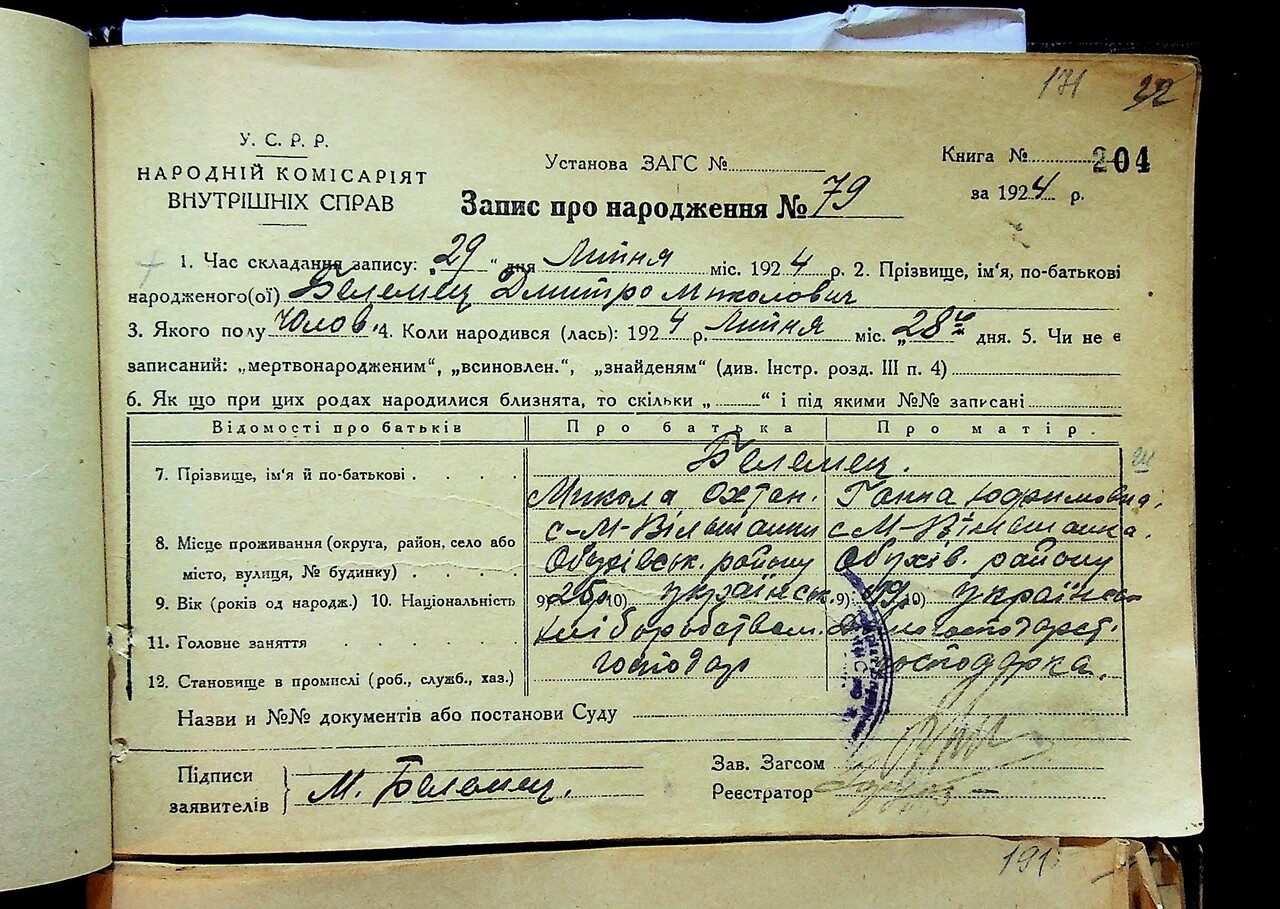 171 22
У. С. Р. Р.
НАРОДНІЙ КОМІСАРІЯТ
ВНУТРІШНІХ СПРАВ
Установа ЗАГС №
Книга № 204
за 1924 р.
Запис про народження № 79
1. Час складання запису: „29“ дня Липня міс. 1924 р. 2. Прізвище, ім'я, по-батькові
народженого(ої) Белемец Дмитро Миколович
3. Якого полу Чолов. 4. Коли народився (лась): 1924 р. Липня міс. „28“ дня. 5. Чи не є
записаний: „мертвонародженим“, „всиновлен.“, „знайденям“ (див. Інстр. розд. III п. 4)
6. Як що при цих родах народилися близнята, то скільки „ “ і під якими №№ записані
Відомості про батьків Про батька Про матір.
7. Прізвище, ім'я й по-батькові . . . . Белемец.
Микола Охтан. Ганна Юфримовна
8. Місце проживання (округа, район, село або с-М-Вільшанки с М-Вільшанка.
місто, вулиця, № будинку) . . . . Обухівськ. району Обухів. району
9. Вік (років од народж.) 10. Національність 9) 25 10) українськ. 9) 10) українськ
11. Головне заняття . . . . хліборобством.
12. Становище в промислі (роб., служб., хаз.) господар господарка.
Назви и №№ документів або постанови Суду
Підписи
заявителів
М. Белемец.
Зав. Загсом
Реєстратор
191